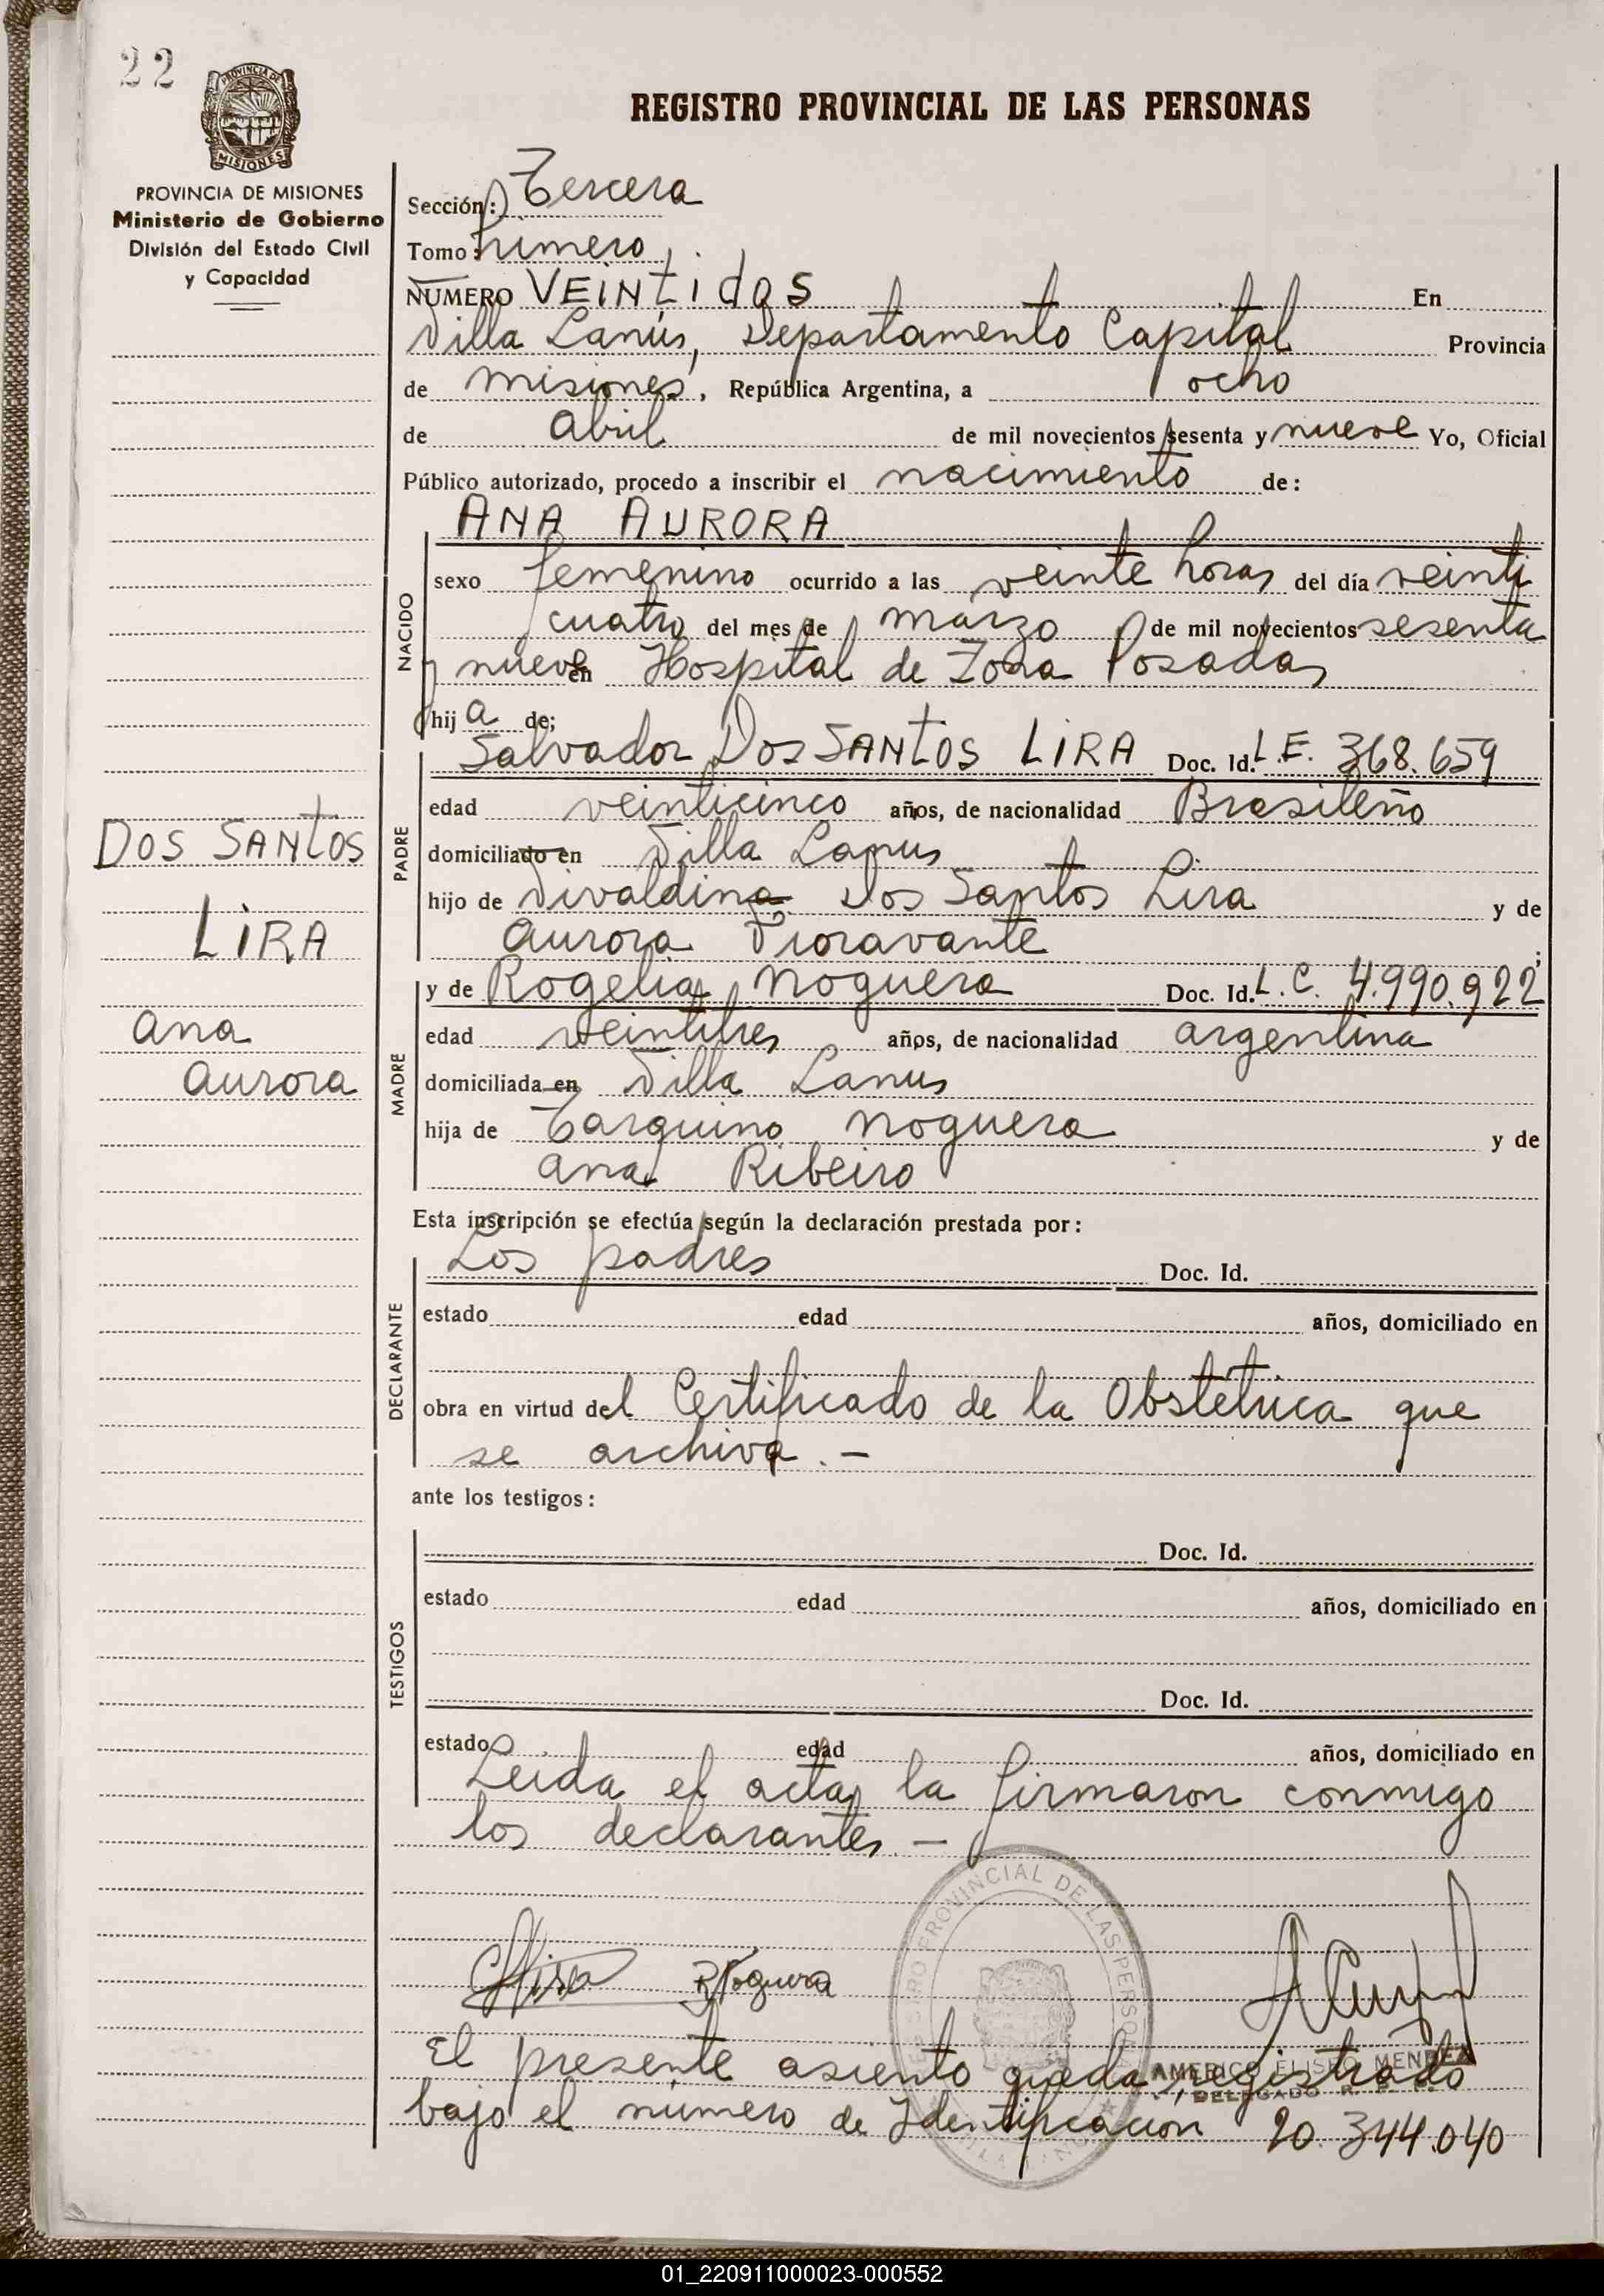 22
PROVINCIA DE
MISIONES
REGISTRO PROVINCIAL DE LAS PERSONAS
PROVINCIA DE MISIONES
Ministerio de Gobierno
División del Estado Civil
y Capacidad
Sección: Tercera
Tomo: primero
NUMERO VEINtidos En
Villa Lanús, Departamento Capital Provincia
de misiones, República Argentina, a ocho
de abril de mil novecientos sesenta y nueve Yo, Oficial
Público autorizado, procedo a inscribir el nacimiento de:
NACIDO
ANA AURORA
sexo femenino ocurrido a las veinte horas del día veinti
cuatro del mes de marzo de mil novecientos sesenta
y nueve en Hospital de Zona Posadas
hija de;
PADRE
Salvador Dos SANtOS LiRA Doc. Id. L.E. 368.659
edad veinticinco años, de nacionalidad Brasileño
domiciliado en Villa Lanus
hijo de Divaldina Dos Santos Lira y de
Aurora Fioravante
DOS SANtOS
LiRA
Ana
Aurora
MADRE
y de Rogelia Noguera Doc. Id. L.C. 4.990.922
edad veintitres años, de nacionalidad argentina
domiciliada en Villa Lanus
hija de Tarquino Noguera y de
Ana Ribeiro
Esta inscripción se efectúa según la declaración prestada por:
DECLARANTE
Los padres Doc. Id.
estado edad años, domiciliado en
obra en virtud del Certificado de la Obstetrica que
se archiva.-
ante los testigos:
TESTIGOS
Doc. Id.
estado edad años, domiciliado en
Doc. Id.
estado edad años, domiciliado en
Leida el acta, la firmaron conmigo
los declarantes.-
REGISTRO PROVINCIAL DE LAS PERSONAS
RNoguera
AMERICO ELISEO MENDEZ
DELEGADO R. P. P.
El presente asiento queda registrado
bajo el número de Identificacion 20.344.040
01_220911000023-000552